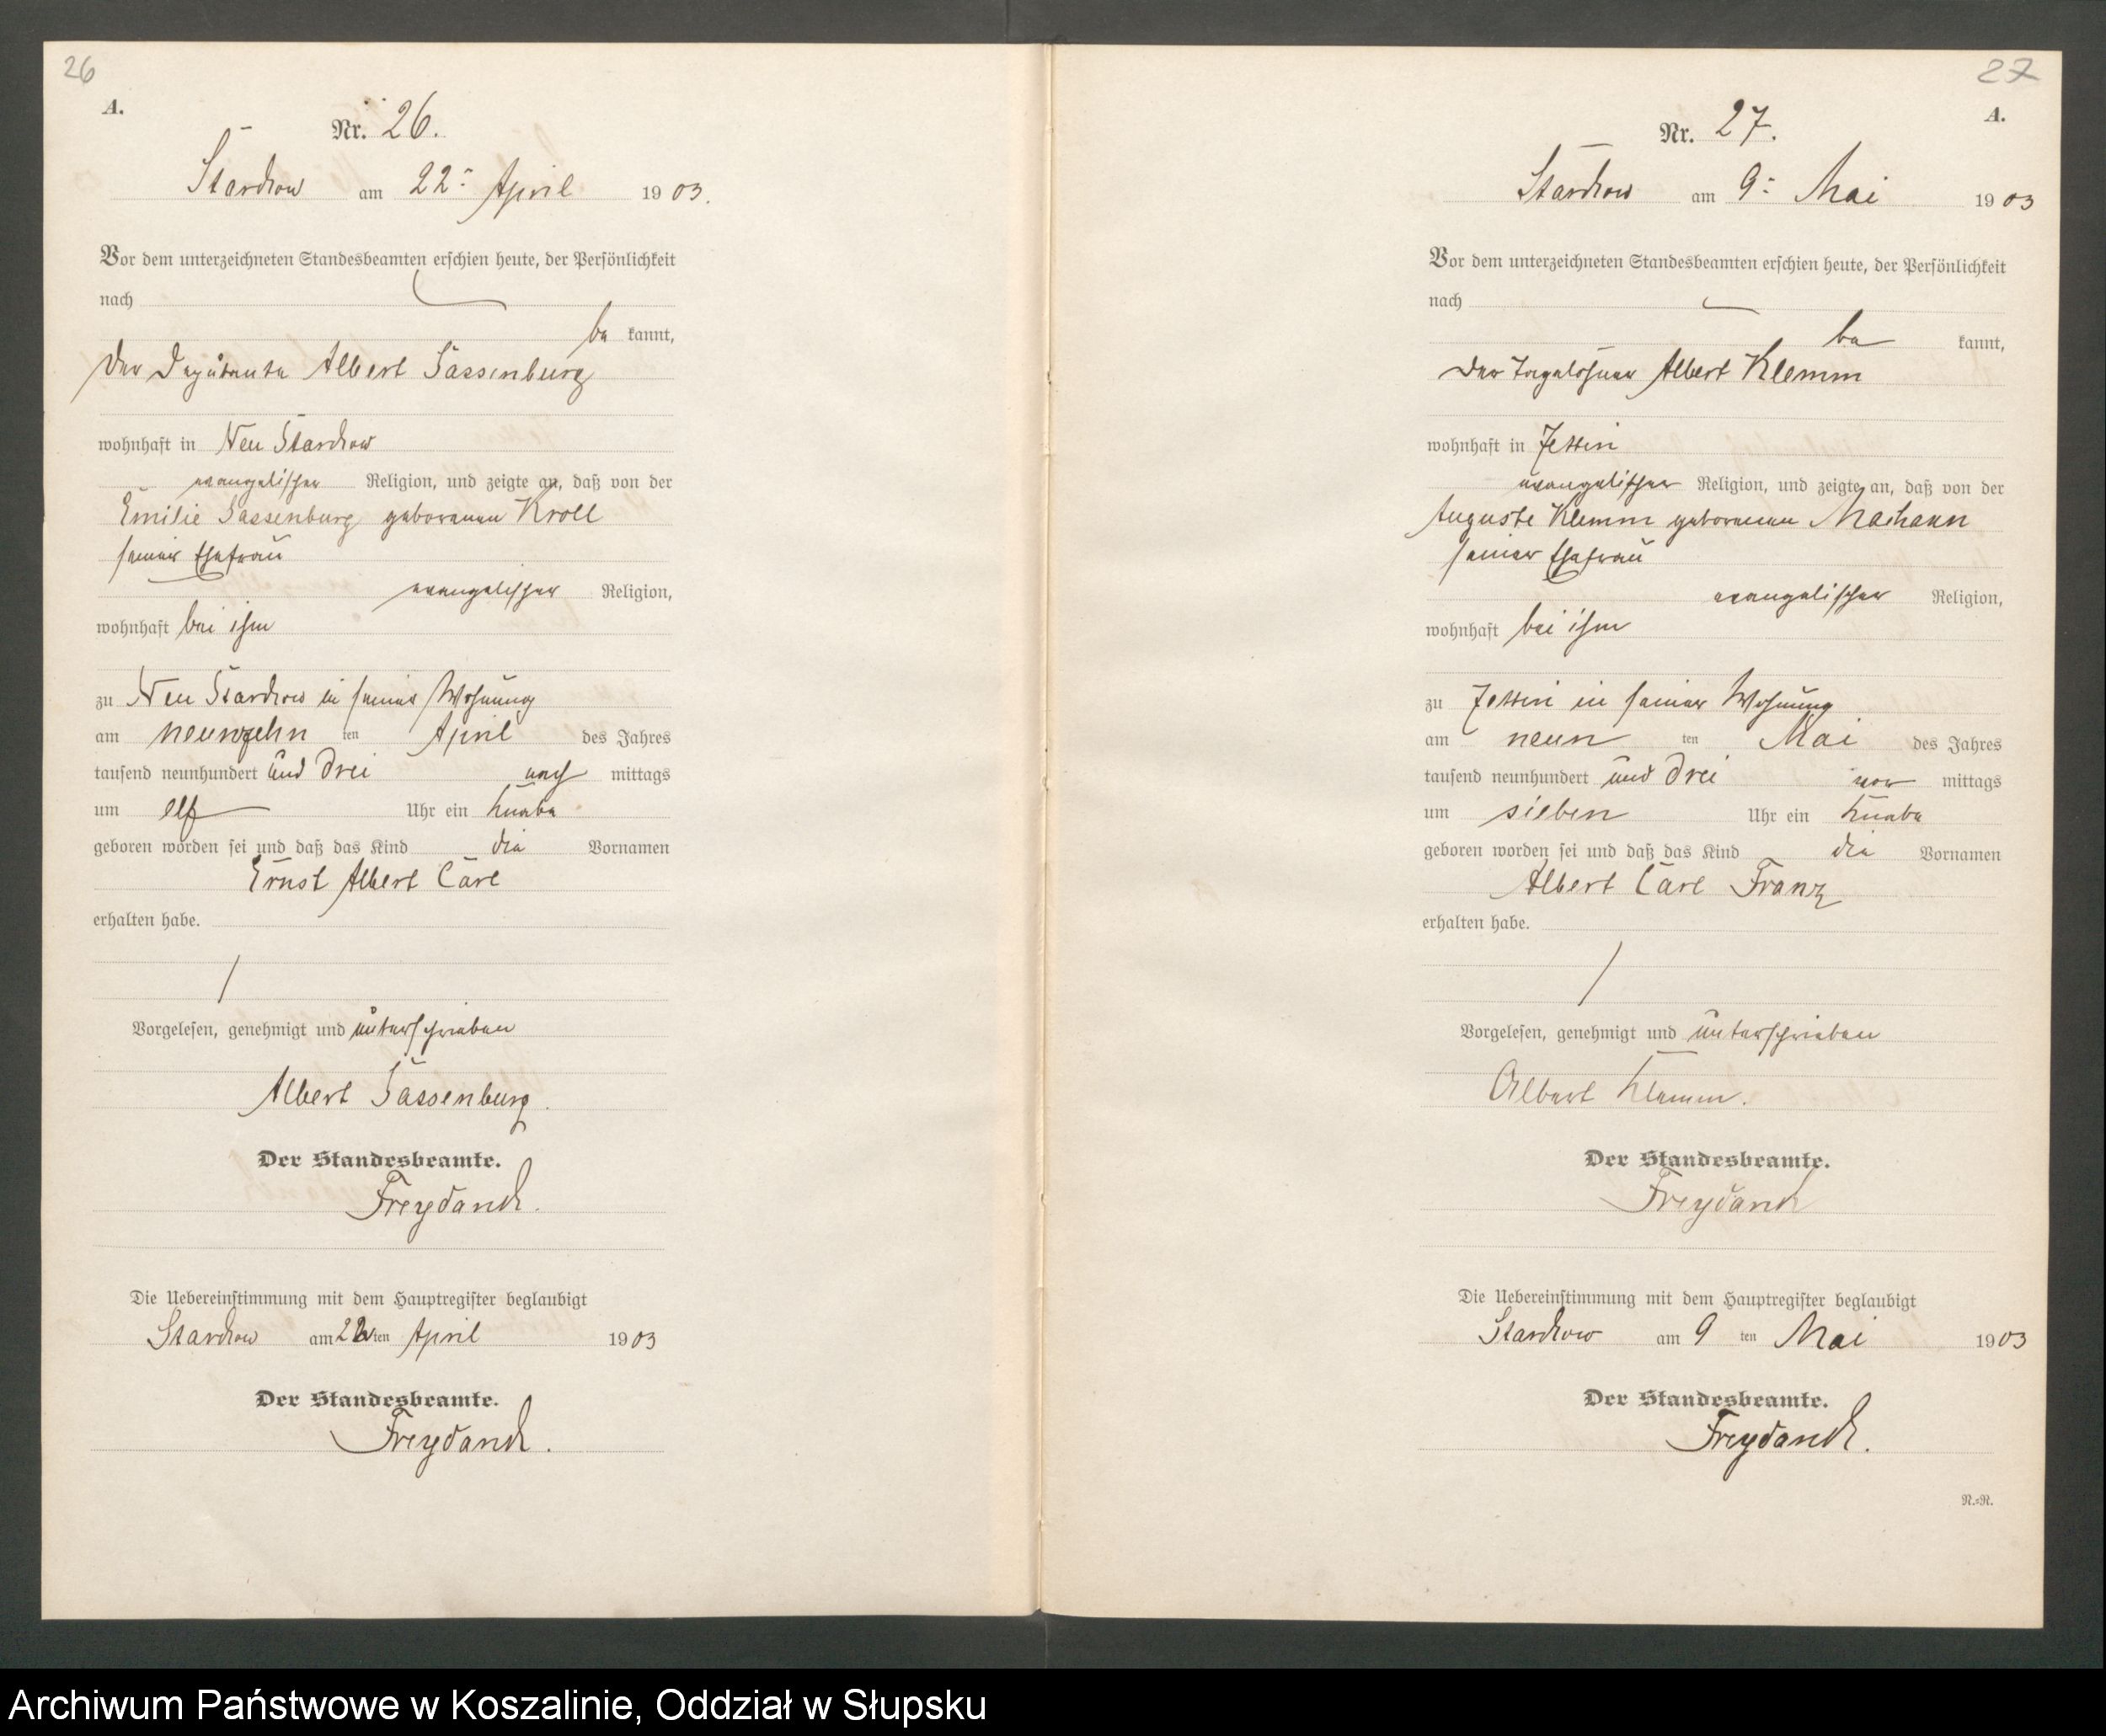 26
A.
Nr. 26.
Starckow am 22ᵗ April 1903.
Vor dem unterzeichneten Standesbeamten erschien heute, der Persönlichkeit
nach
be kannt,
Der Deputante Albert Sassenburg
wohnhaft in Neu Starckow
evangelischer Religion, und zeigte an, daß von der
Emilie Sassenburg geborenen Kroll
seiner Ehefrau
evangelischer Religion,
wohnhaft bei ihm
zu Neu Starckow in seiner Wohnung
am neunzehn ten April des Jahres
tausend neunhundert und drei nach mittags
um elf Uhr ein Knabe
geboren worden sei und daß das Kind die Vornamen
Ernst Albert Carl
erhalten habe.
Vorgelesen, genehmigt und unterschrieben
Albert Sassenburg.
Der Standesbeamte.
Freydanck.
Die Uebereinstimmung mit dem Hauptregister beglaubigt
Starckow am 22 ten April 1903
Der Standesbeamte.
Freydanck.
27
A.
Nr. 27.
Starckow am 9ᵗ Mai 1903
Vor dem unterzeichneten Standesbeamten erschien heute, der Persönlichkeit
nach
be kannt,
Der Tagelöhner Albert Klemm
wohnhaft in
evangelischer Religion, und zeigte an, daß von der
Auguste Klemm geborenen
seiner Ehefrau
evangelischer Religion,
wohnhaft bei ihm
zu in seiner Wohnung
am neun ten Mai des Jahres
tausend neunhundert und drei vor mittags
um sieben Uhr ein Knabe
geboren worden sei und daß das Kind die Vornamen
Albert Carl Franz
erhalten habe.
Vorgelesen, genehmigt und unterschrieben
Albert Klemm.
Der Standesbeamte.
Freydanck
Die Uebereinstimmung mit dem Hauptregister beglaubigt
Starckow am 9 ten Mai 1903
Der Standesbeamte.
Freydanck.
N.=R.
Archiwum Państwowe w Koszalinie, Oddział w Słupsku